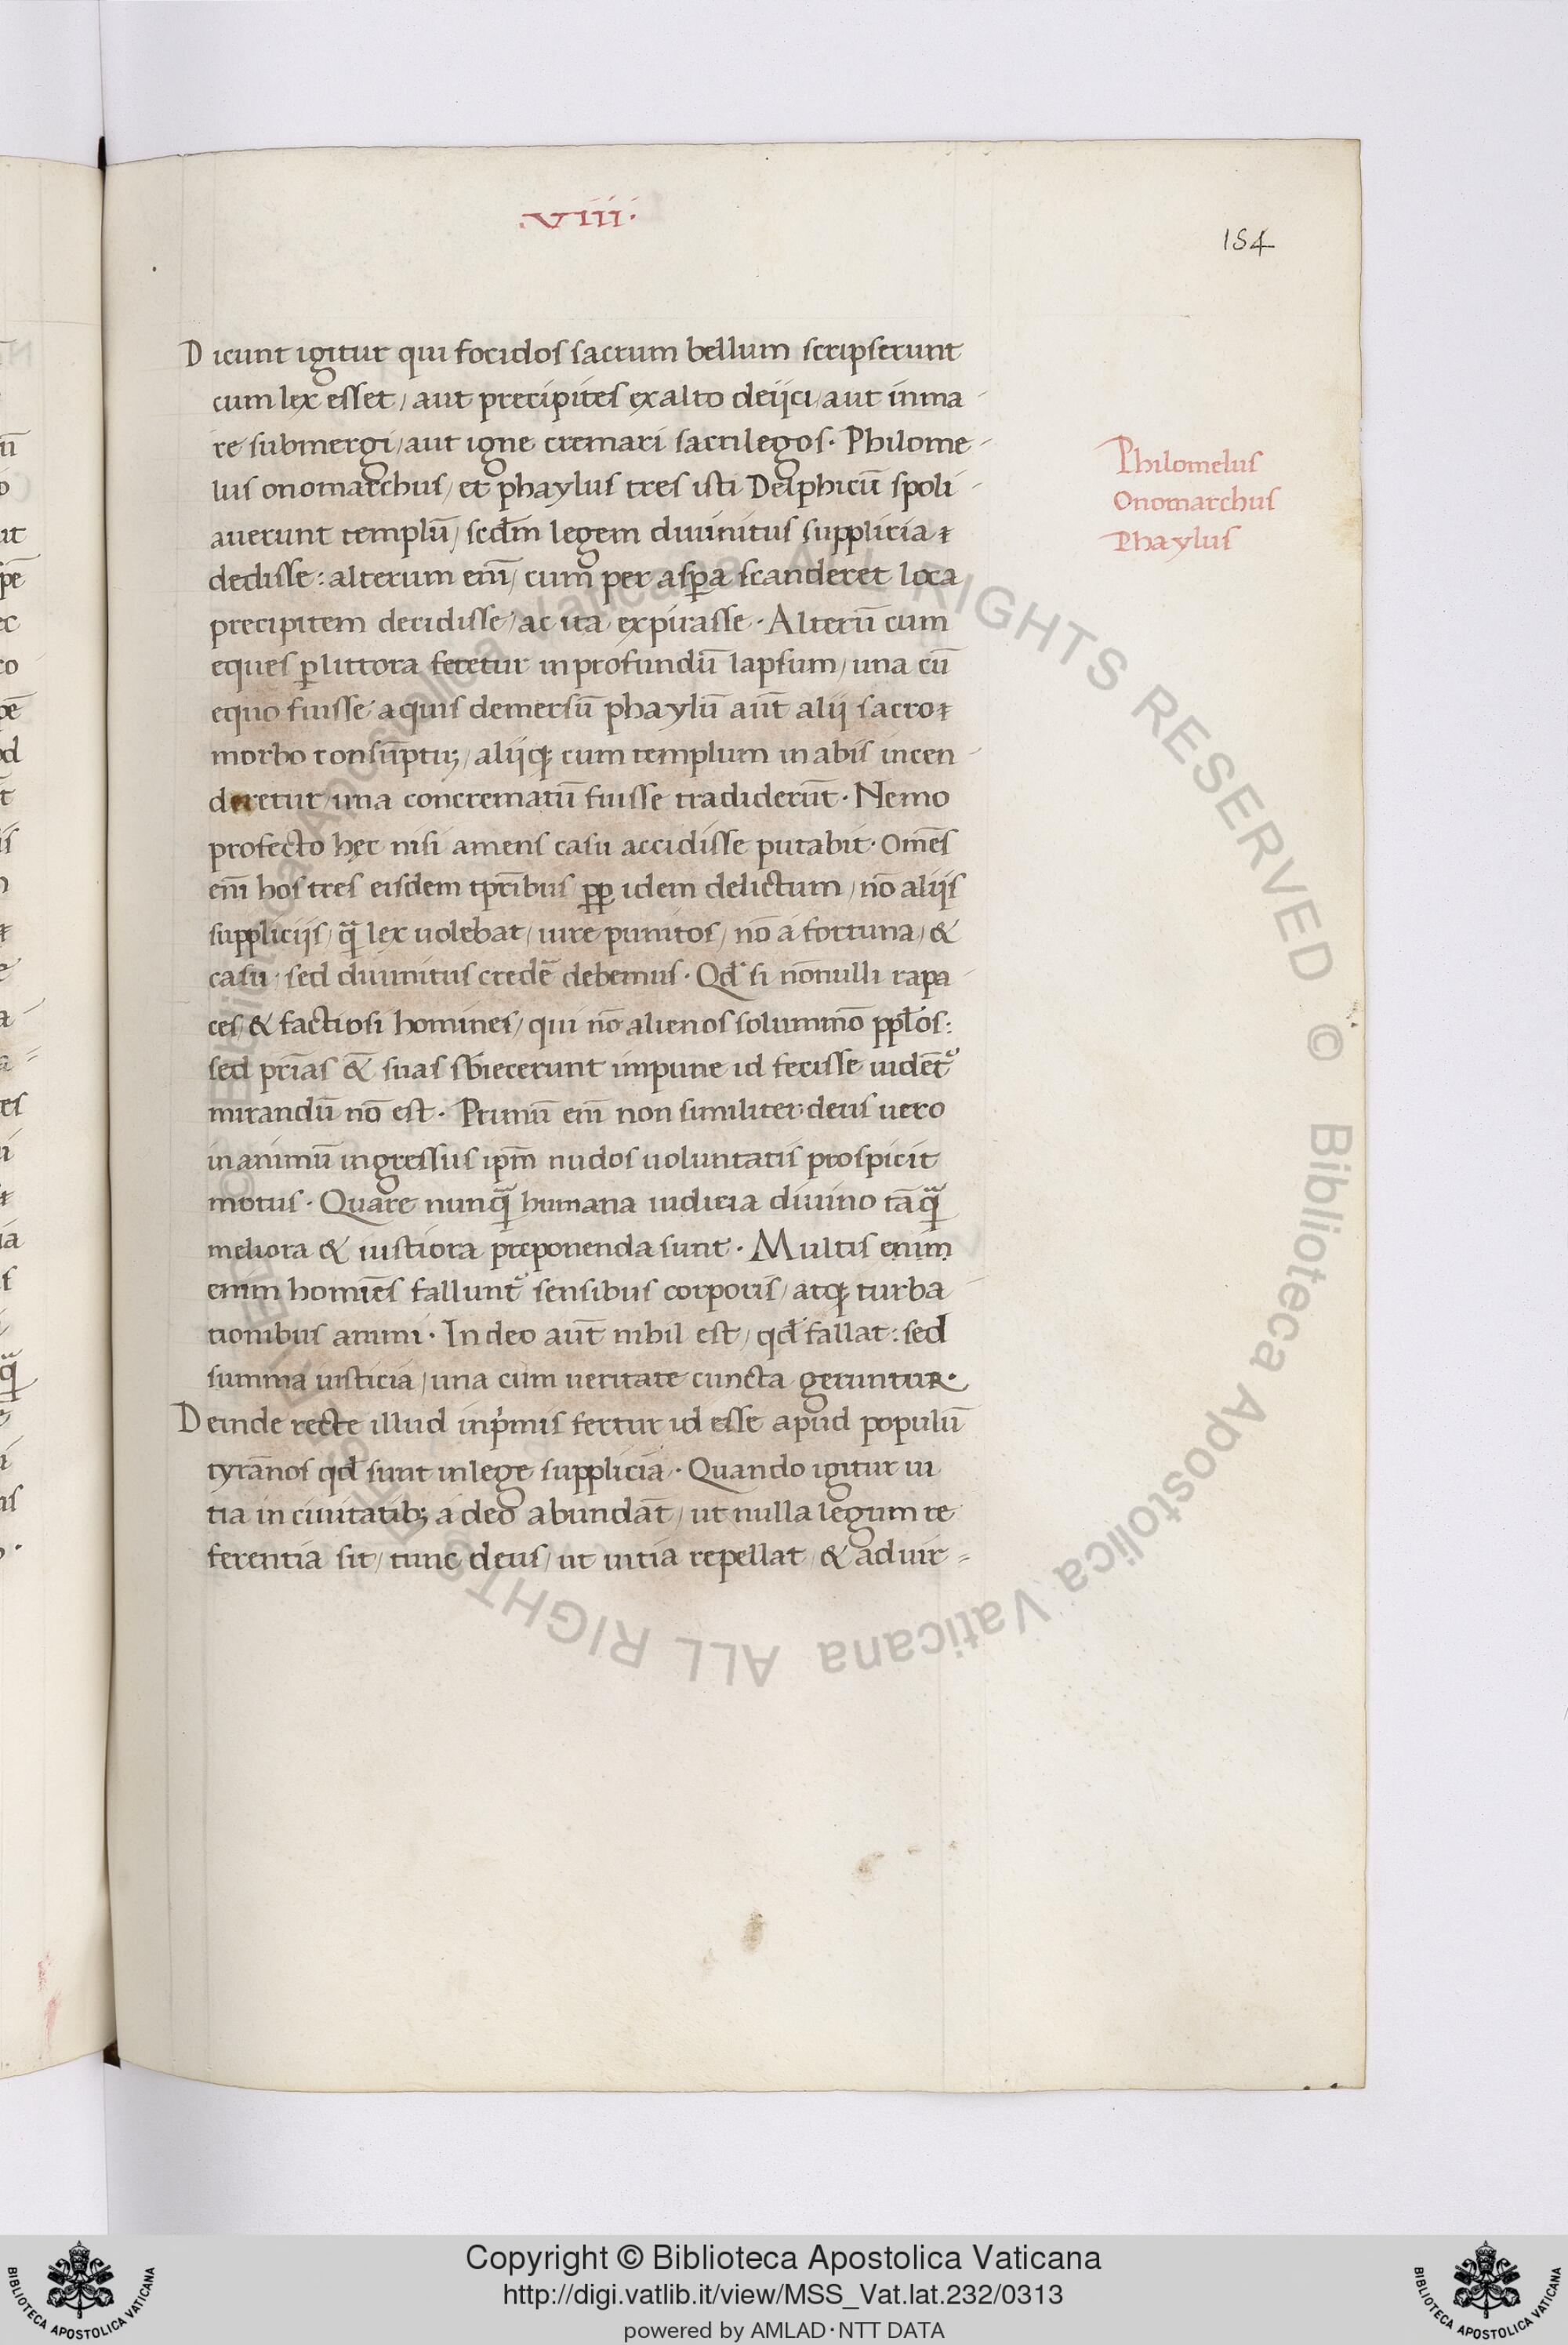 .viii.
154
Dicunt igitur qui focidos sacrum bellum scripserunt
cum lex esset / aut precipites ex alto deijci / aut in ma-
re submergi / aut igne cremari sacrilegos. Philome-
lus onomarchus / et phaylus tres isti Delphicū spoli-
auerunt templū / scđm legem diuinitus supplicia
dedisse: alterum eni̅ / cum per asꝑa scanderet loca
precipitem decidisse / ac ita expirasse. Alterū cum
eques ꝑ littora feretur in profundū lapsum / una cū
equo fuisse aquis demersū phaylū aut̅ alij sacro
morbo consūptuꝫ / alijqꝫ cum templum in abis incen-
deretur / una concrematū fuisse tradiderūt. Nemo
profecto hęc nisi amens casu accidisse putabit. Om̅es
eni̅ hos tres eisdem tp̅ribus ꝓp idem delictum / nō alijs
supplicijs / qᷓ lex uolebat / iure punitos / nō a fortuna / &
casu / sed diuinitus crede̅ debemus. Qđ si nōnulli rapa-
ces / & factiosi homines / qui nō alienos solummō ppl̅os:
sed pr̅ias &̅ suas sb̅iecerunt impune id fecisse uidēt᷑
mirandū nō est. Primū eni̅ non similiter deus uero
in animū ingressus ip̅m nudos uoluntatis prospicit
motus. Quare nunqᷓ humana iudicia diuino tāqᷓ
meliora & iustiora preponenda sunt. Multis enim
enim homi̅es fallunt᷑ sensibus corporis / atqꝫ turba-
tionibus animi. In deo aut̅ nihil est / qđ fallat: sed
summa iusticia / una cum ueritate cuncta geruntur.
Deinde recte illud inp̅mis fertur id esse apud populū
tyrānos qđ sunt in lege supplicia. Quando igitur ui-
tia in ciuitatibꝫ adeo abundāt / ut nulla legum re-
ferentia sit / tunc deus / ut uitia repellat / & ad uir=
Philomelus
Onomarchus
Phaylus
Copyright © Biblioteca Apostolica Vaticana
http://digi.vatlib.it/view/MSS_Vat.lat.232/0313
powered by AMLAD·NTT DATA